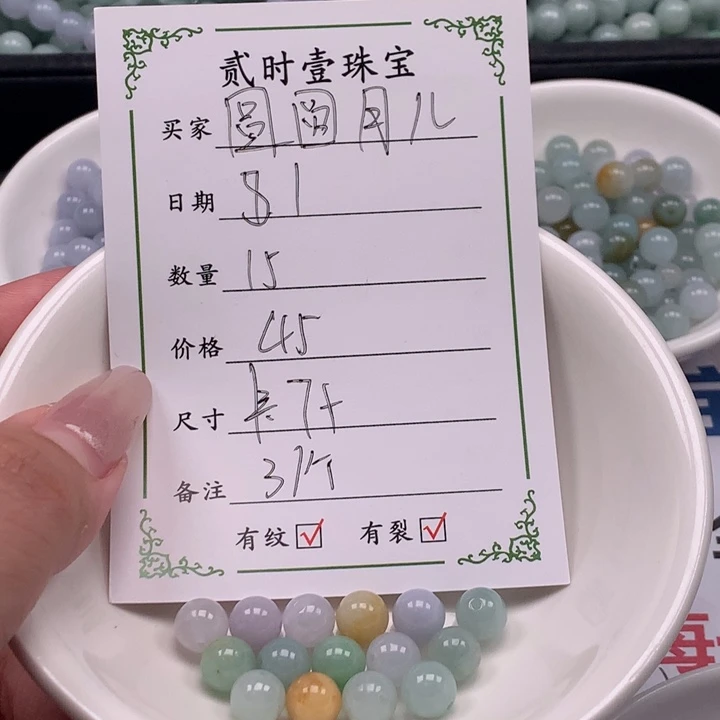 贰时壹珠宝
买家 圆圆月儿
日期 8 1
数量 15
价格 45
尺寸 长7+
备注 3个
有纹 ☑ 有裂 ☑